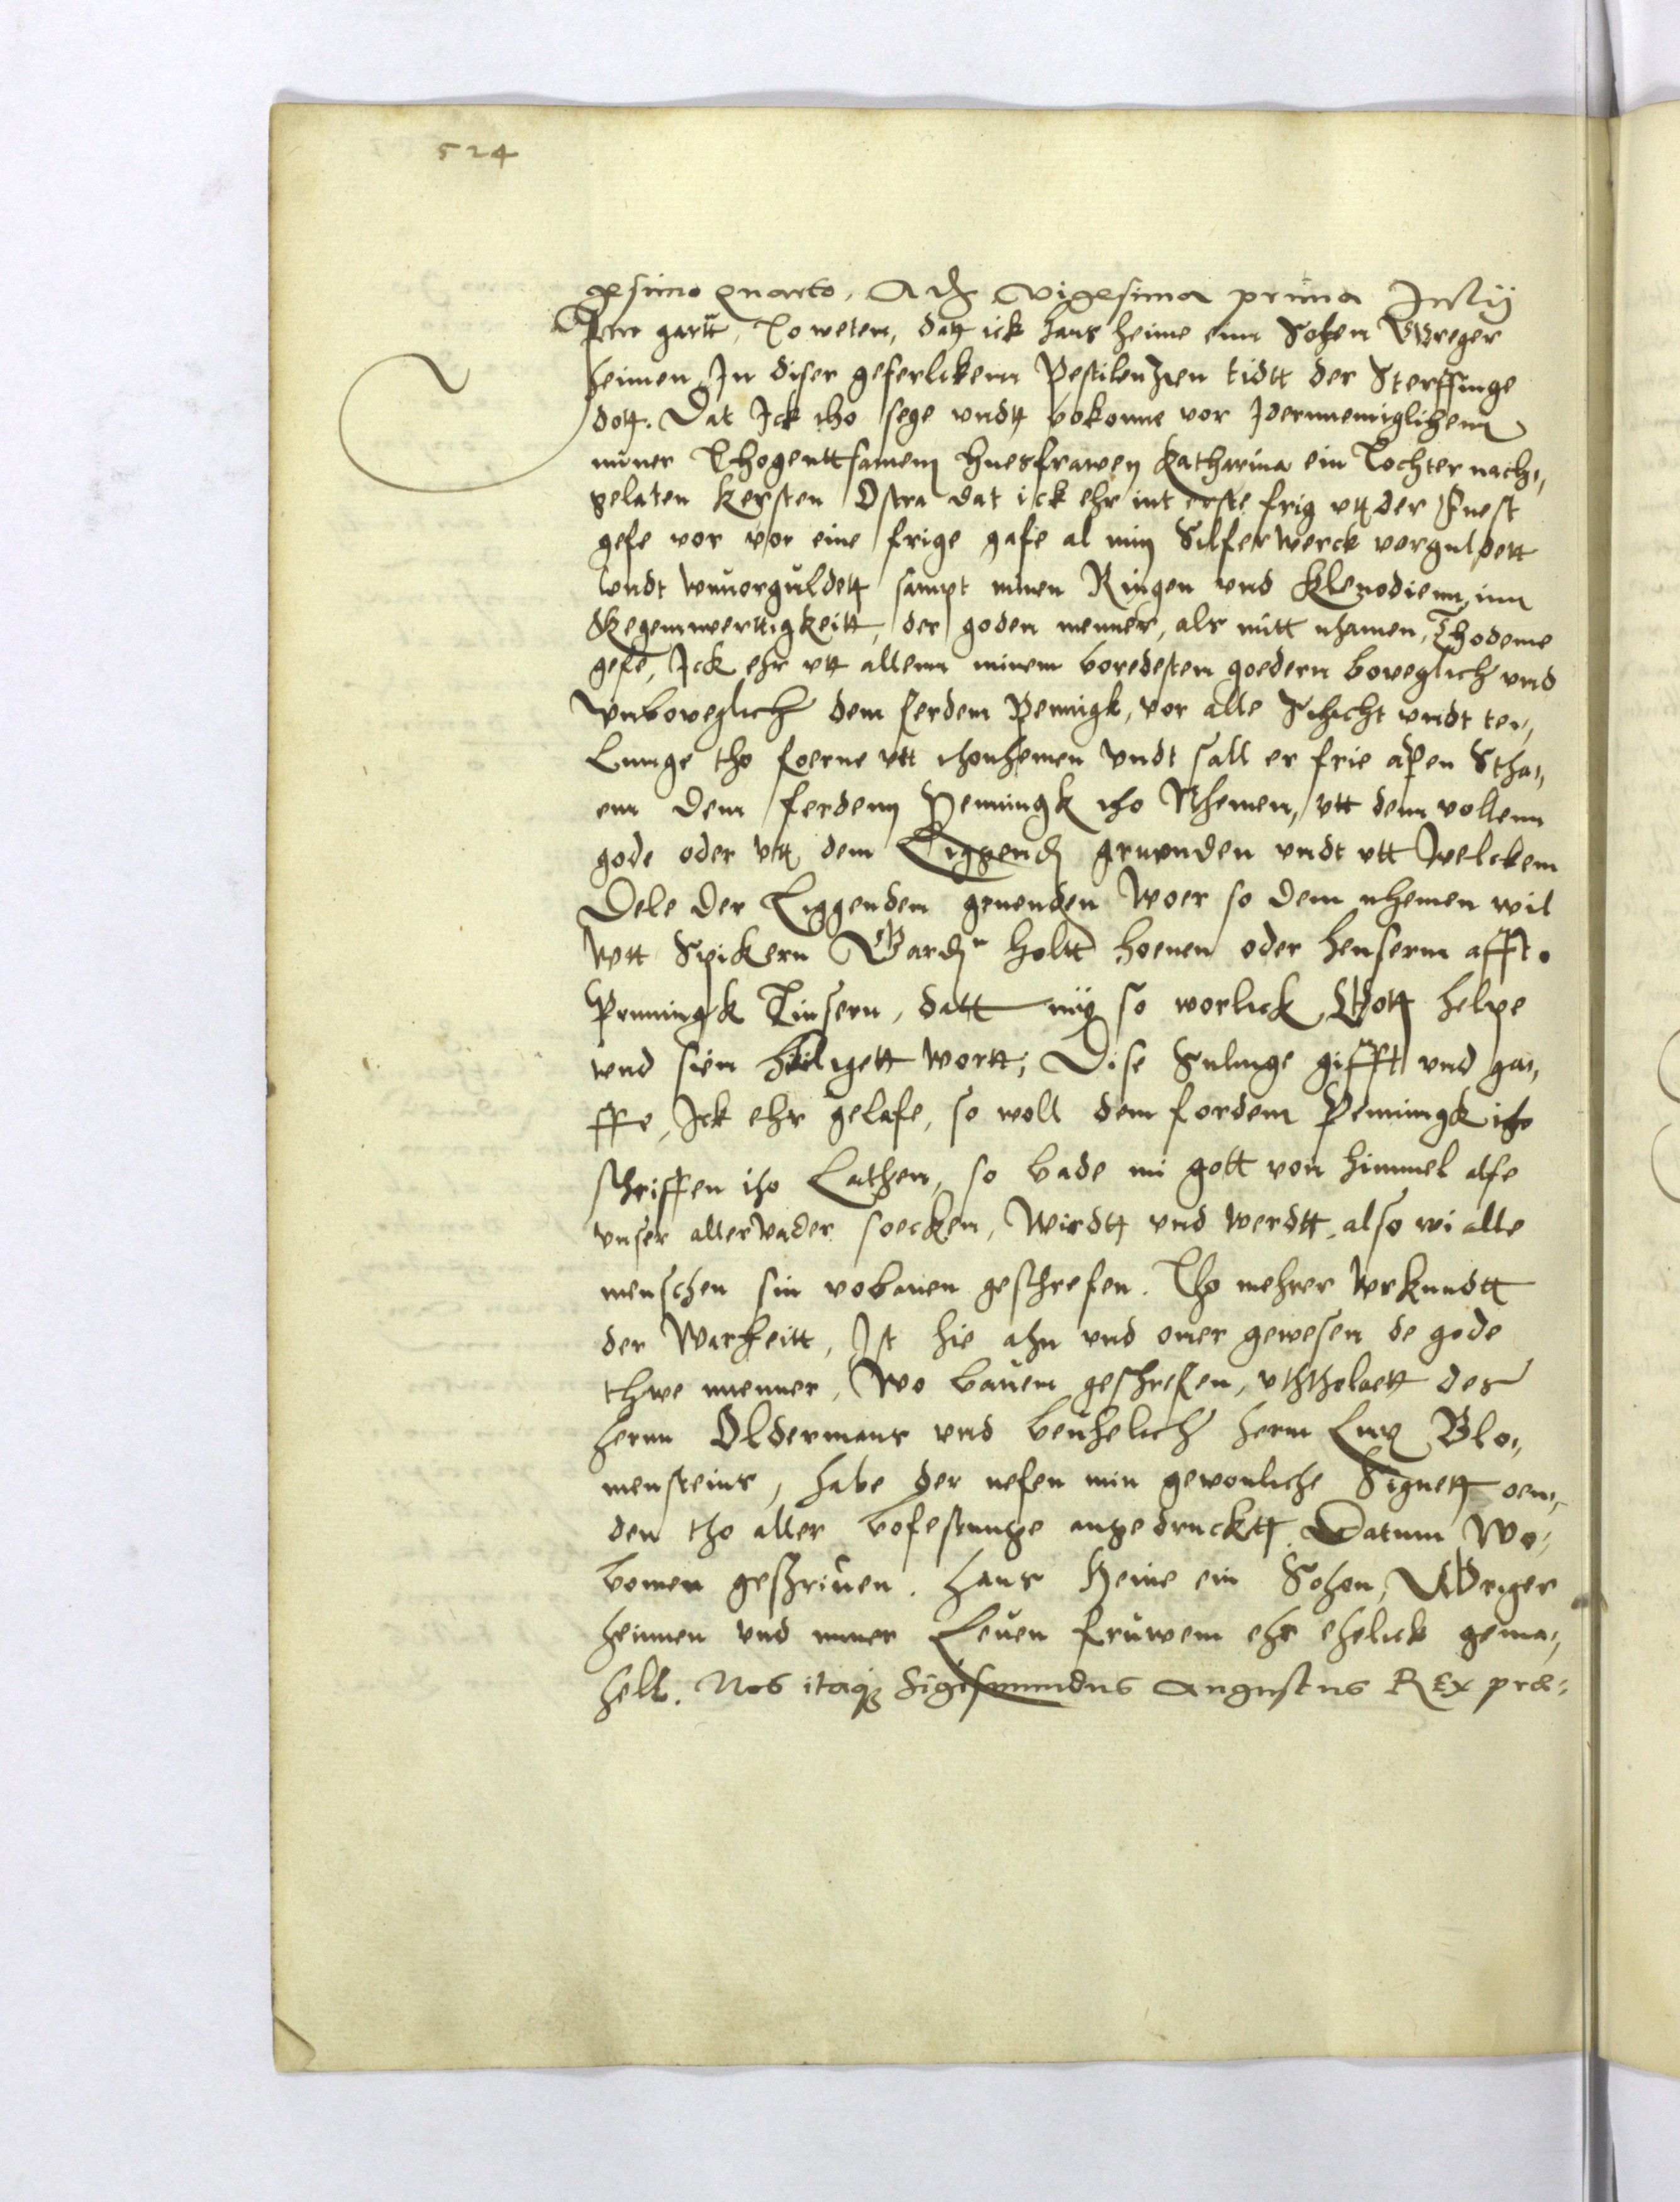 524
gesimo quarto, A d vigesima prima July
gartt, To weten, datt ick hans heime einn Sohen Greger
heimen In diser geferlickenn Pestilenzien tidtt der Sterffinge
dott. Dat Ick tho sege vndtt bokonne vor Idernnemiglichenn
miner Thogenttsamenn hnesfrawenn Katharina ein Tochter nach„
gelaten Kersten Ostra dat ick ehr int erste frig vtt der fuest
gefe vor vor eine frige gafe al min Silferwerck verguldett
vndt vnvorguldett sampt minen Ringen vnd Klenodienn, inn
kegenwerttigkeitt, der goden menner, als mitt nhamen, Thodeme
gefe, Ick ehr vtt allenn minem boredesten goedern boveglich vnd
vnboveglich dem ferdem Pennigk, vor alle Schicht vndt tei„
lunge tho foerne vtt thonhemen vndt sall er frie apen Stha„
en dem ferdenn Penningk tho Nhemen, vtt dem vollenn
gode oder vtt dem Liggend grunden vndt vtt welckem
Dele der Liggenden gruenden woer so dem nhemen wil
vtt Spickern Gard holtt hoenen oder heusern afft.
Penningk Tinsern, datt mij so worlick Gott helpe
vnd sien heiligett wortt; Dise Sulinge gifft vnd ga„
ffe, Ick ehr gelafe, so woll dem fordem Penningk tho
schriffen tho Lathen, so bade mi gott von himmel alse
vnser aller vader soecken, wirdtt vnd werdtt, also wi alle
menschen sin vobauen geschrefen. Tho mehrer Vrkundtt
der Warheitt, Ist hie ahn vnd ouer gewesen de gode
thwe menner, Wo bauen geschrefen, vththolaett des
hernn Oldermans vnd benhelich hernn Lutz Blo„
mensteins, habe der nefen min gewonliche Signett oen„
den tho aller bofestunge angedrucktt. Datum Wo„
bowen geschriuen. Hans Heine ein Sohon, Greger
heinnen vnd miner Leuen fruwem ehr ehelick gema„
hell. Nos itaq Sigismundus Augustus REx præ„